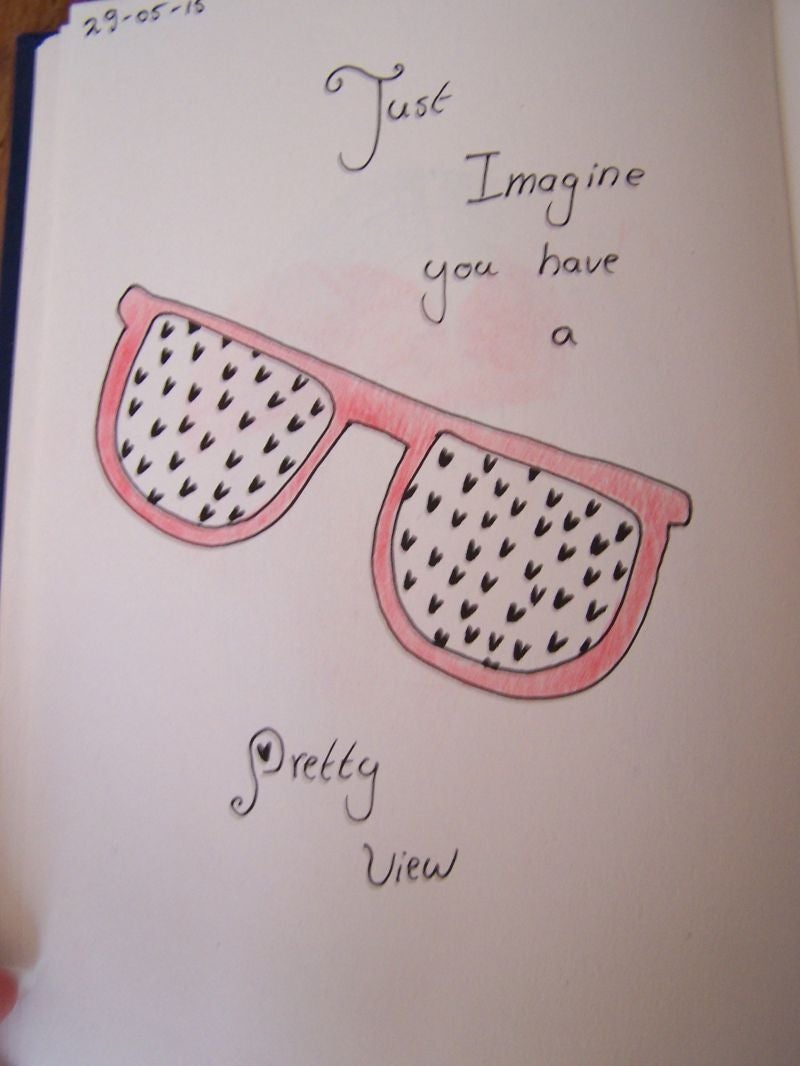 29-05-15
Just
Imagine
you have
a
Pretty
View